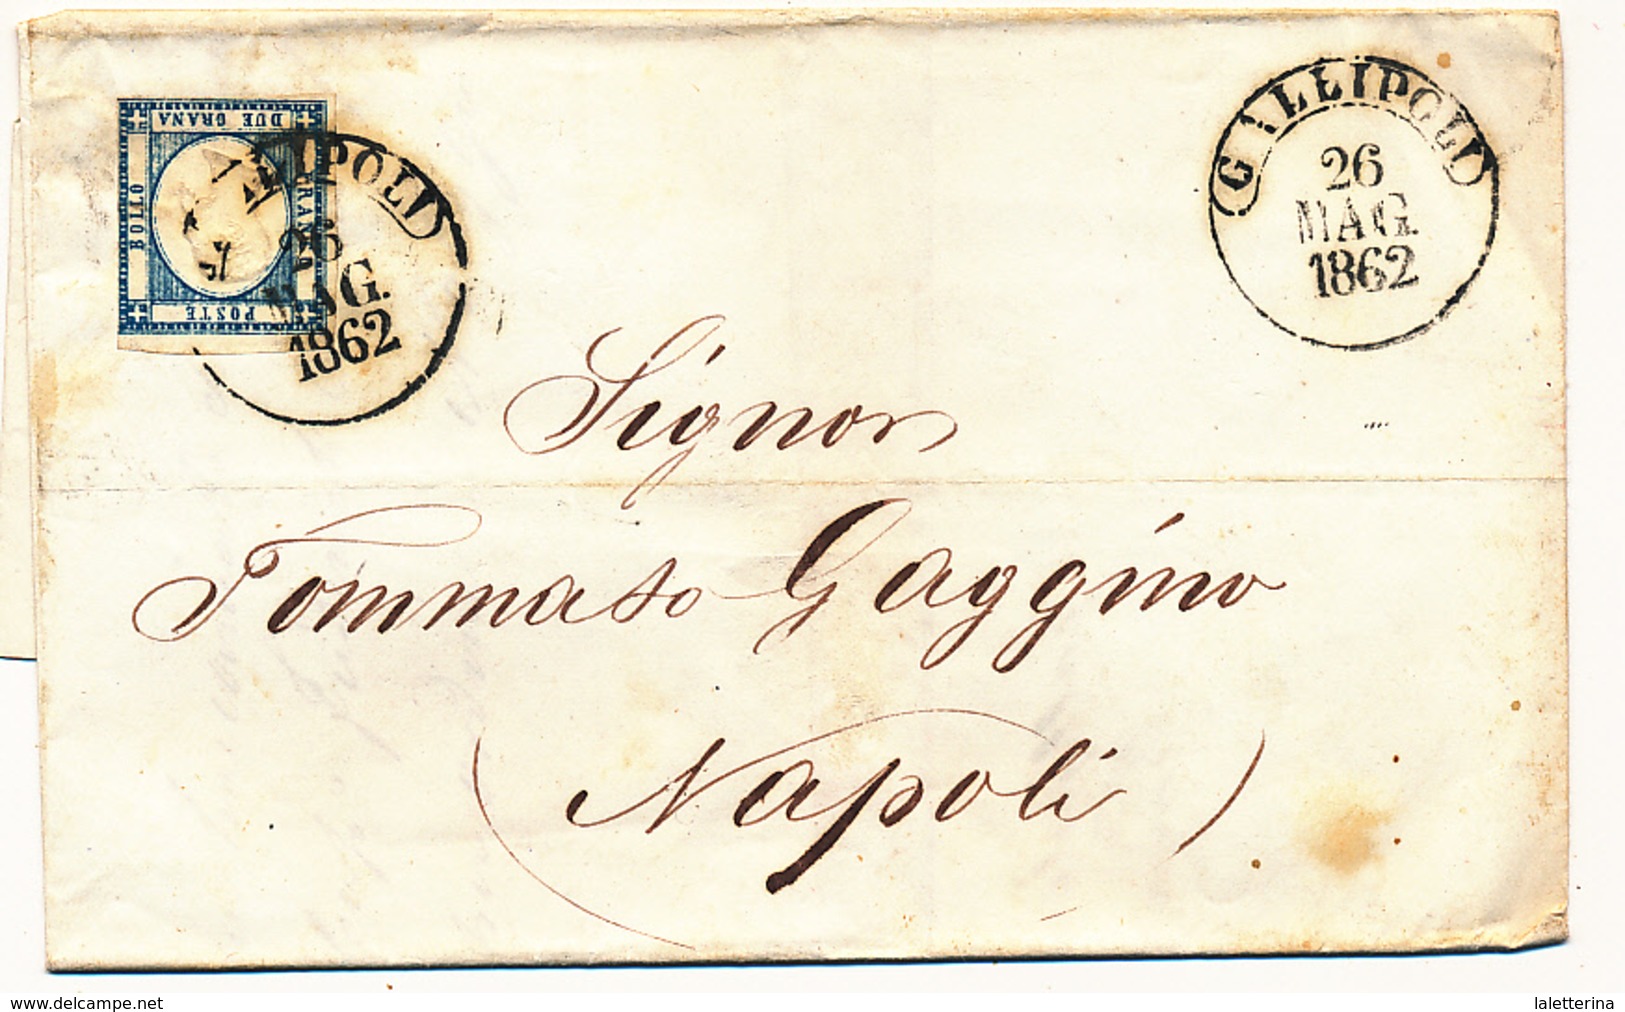 DUE GRANA
BOLLO
GRANA
POSTE
LIPOLI
26
MAG.
1862
GALLIPOLI
26
MAG.
1862
Signor
Tommaso Gaggino
(Napoli)
www.delcampe.net
laletterina